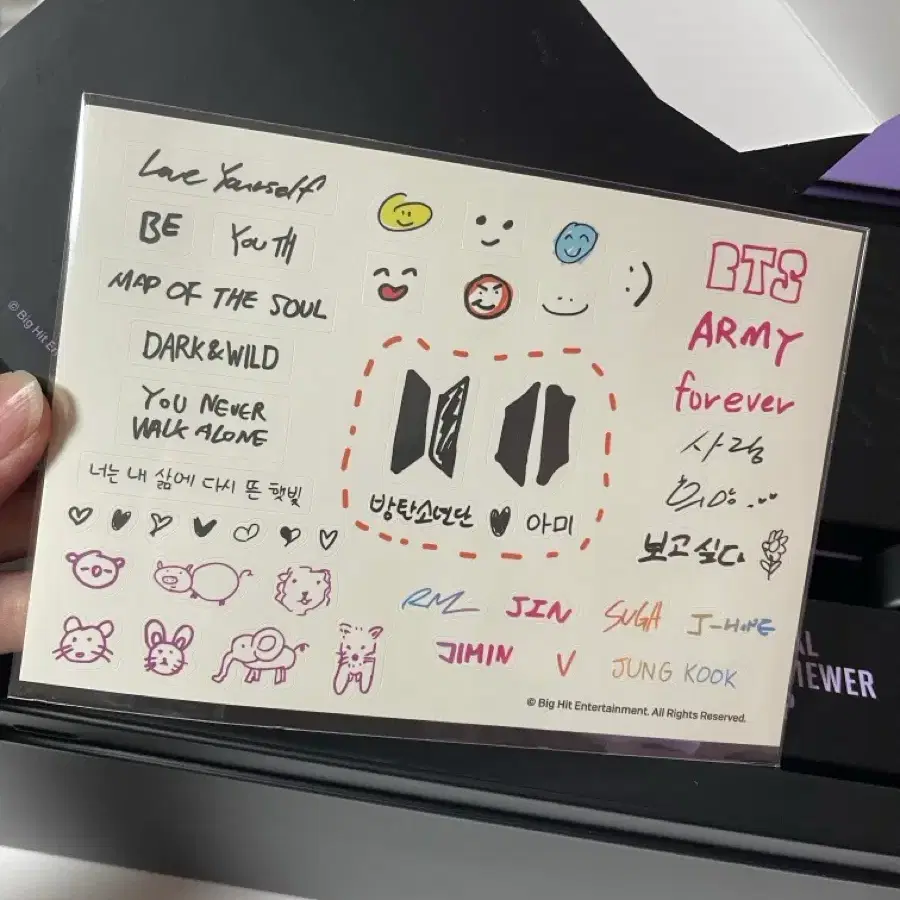 Love Yourself
BE
YOUTH
MAP OF THE SOUL
DARK&WILD
YOU NEVER
WALK ALONE
너는 내 삶에 다시 뜬 햇빛
:)
방탄소년단 아미
BTS
ARMY
forever
사랑
희망
보고싶다
RM
JIN
SUGA
J-HOPE
JIMIN
V
JUNG KOOK
© Big Hit Entertainment. All Rights Reserved.
© Big Hit